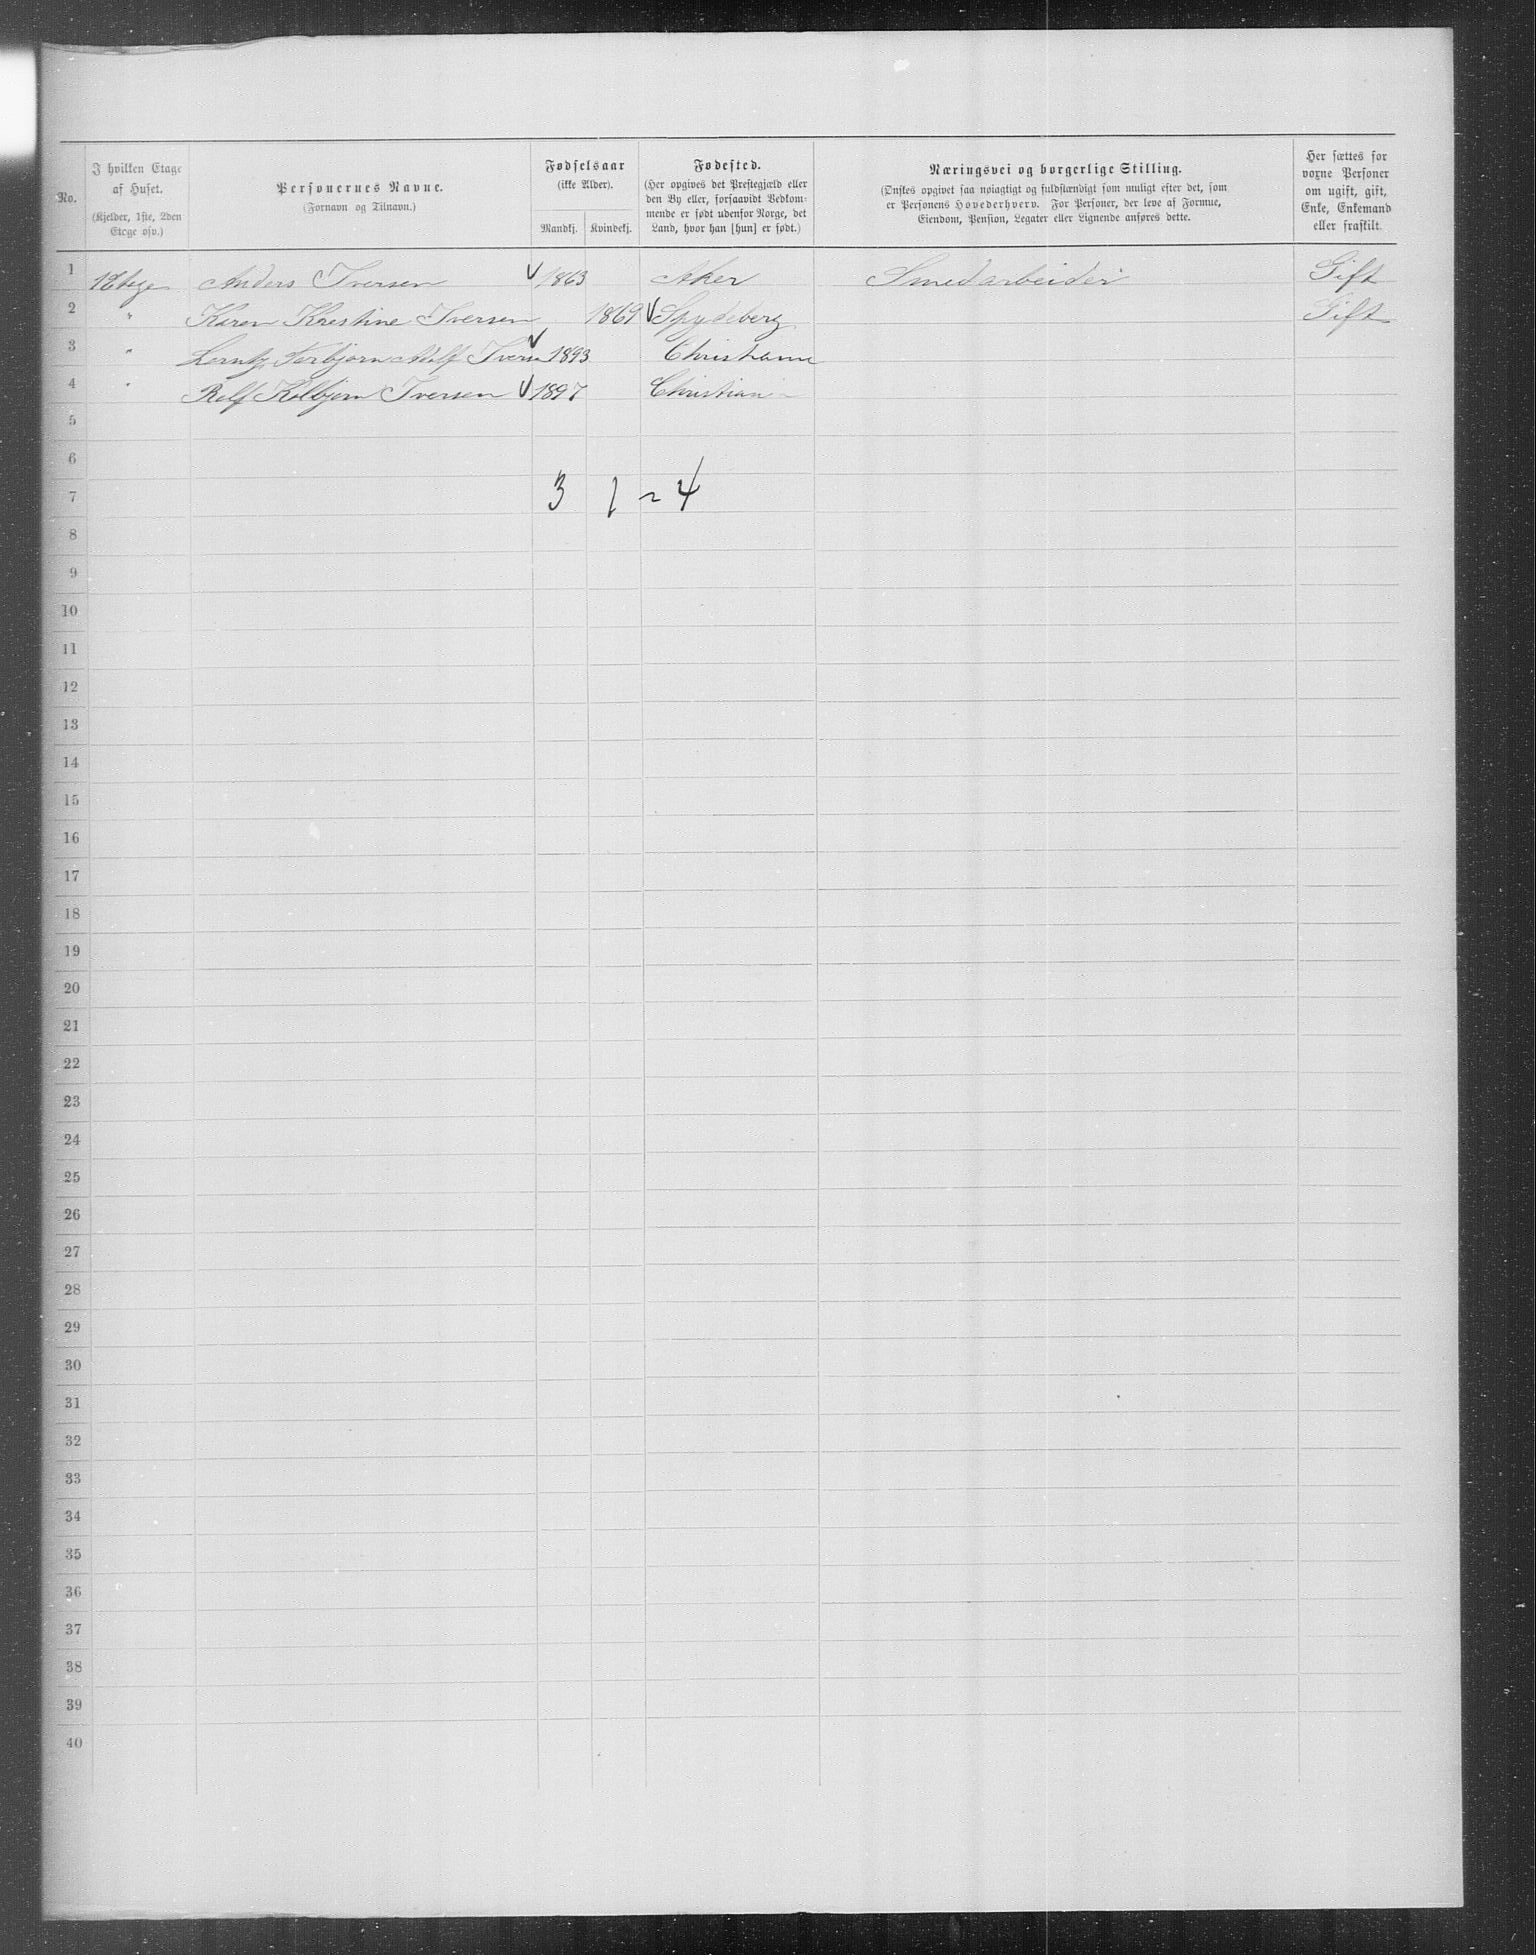 No.
I hvilken Etage
af Huset.
(Kjelder, 1ste, 2den
Etage osv.)
Personernes Navne.
(Fornavn og Tilnavn.)
Fødselsaar
(ikke Alder).
Mandkj. Kvindekj.
Fødested.
(Her opgives det Prestegjæld eller
den By eller, forsaavidt Vedkom-
mende er født udenfor Norge, det
Land, hvor han [hun] er født.)
Næringsvei og borgerlige Stilling.
(Ønskes opgivet saa nøiagtigt og fuldstændigt som muligt efter det, som
er Personens Hovederhverv. For Personer, der leve af Formue,
Eiendom, Pension, Legater eller Lignende anføres dette.
Her sættes for
voxne Personer
om ugift, gift,
Enke, Enkemand
eller fraskilt.
1 1 Etage Anders Iversen √ 1863 Aker Smedarbeider Gift
2 " Karen Kristine Iversen 1869 √ Spydeberg Gift
3 " Torbjorn Adolf Iversen √ 1893 Christiania
4 " Rolf Kolbjørn Iversen √ 1897 Christian
5
6
7 3 1 ~ 4
8
9
10
11
12
13
14
15
16
17
18
19
20
21
22
23
24
25
26
27
28
29
30
31
32
33
34
35
36
37
38
39
40